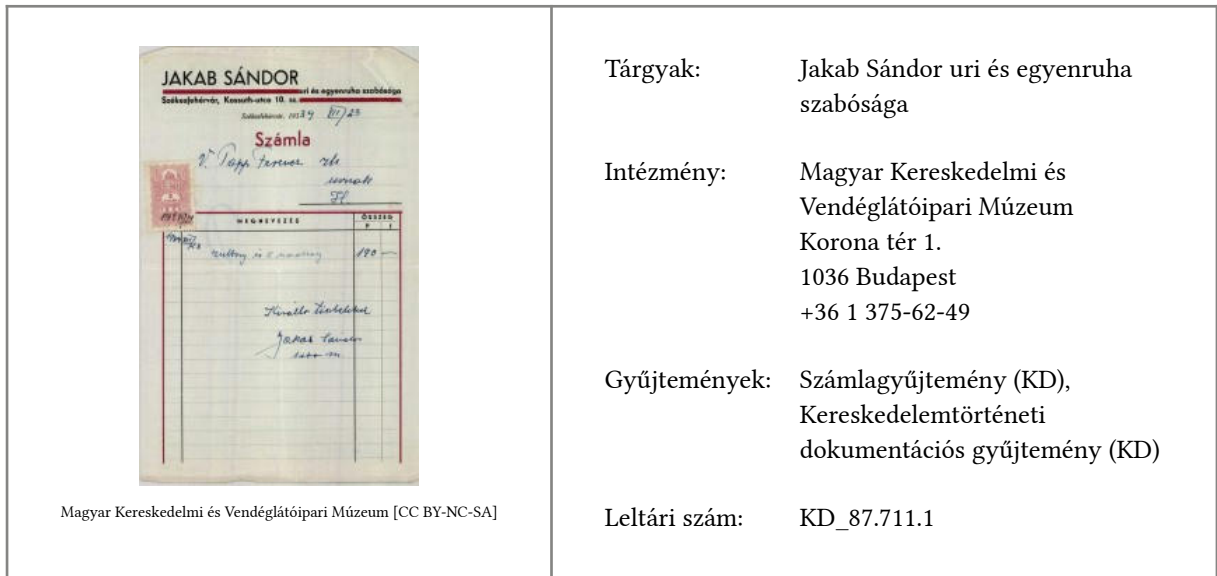 JAKAB SÁNDOR
uri és egyenruha szabósága
Székesfehérvár, Kossuth-utca 10. sz.
Székesfehérvár, 1939 VII/23
Számla
V. Papp Ferenc
urnak
MEGNEVEZÉS
ÖSSZEG
P f
190 —
Jakab Sándor
Magyar Kereskedelmi és Vendéglátóipari Múzeum [CC BY-NC-SA]
Tárgyak: Jakab Sándor uri és egyenruha
szabósága
Intézmény: Magyar Kereskedelmi és
Vendéglátóipari Múzeum
Korona tér 1.
1036 Budapest
+36 1 375-62-49
Gyűjtemények: Számlagyűjtemény (KD),
Kereskedelemtörténeti
dokumentációs gyűjtemény (KD)
Leltári szám: KD_87.711.1